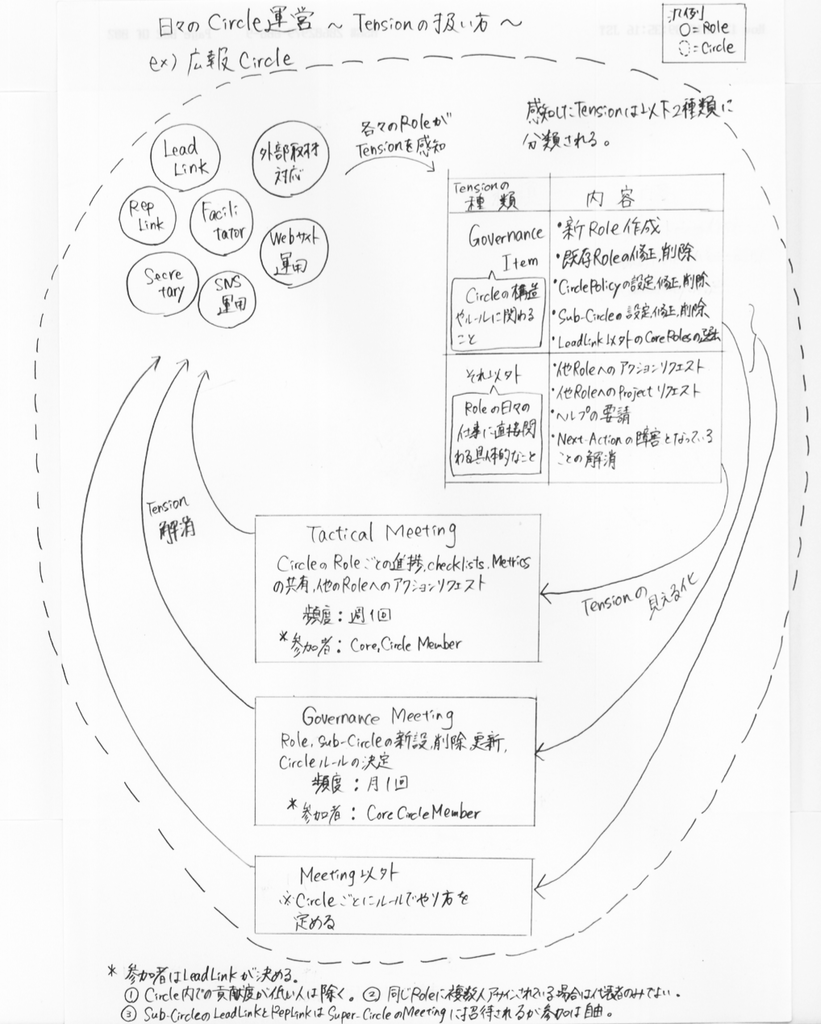 日々のCircle運営 〜 Tensionの扱い方 〜
ex) 広報Circle
凡例
○=Role
◌=Circle
Lead
Link
外部取材
対応
Rep
Link
Facili
tator
Webサイト
運用
Secre
tary
SNS
運用
各々のRoleが
Tensionを感知
感知したTensionは以下2種類に
分類される。
Tensionの
種類
内容
Governance
Item
Circleの構造
やルールに関わる
こと
・新Role作成
・既存Roleの修正,削除
・CirclePolicyの設定,修正,削除
・Sub-Circleの設定,修正,削除
・LeadLink以外のCoreRolesの選出
それ以外
Roleの日々の
仕事に直接関
わる具体的なこと
・他Roleへのアクションリクエスト
・他RoleへのProjectリクエスト
・ヘルプの要請
・Next-Actionの障害となっている
ことの解消
Tension
解消
Tensionの
見える化
Tactical Meeting
CircleのRoleごとの進捗,checklists,Metrics
の共有,他のRoleへのアクションリクエスト
頻度：週1回
*参加者：Core,Circle Member
Governance Meeting
Role,Sub-Circleの新設,削除,更新,
Circleルールの決定
頻度：月1回
*参加者：Core Circle Member
Meeting以外
※Circleごとにルールでやり方を
定める
* 参加者はLeadLinkが決める。
① Circle内での貢献度が低い人は除く。 ② 同じRoleに複数人アサインされている場合は代表者のみでよい。
③ Sub-CircleのLeadLinkとRepLinkはSuper-CircleのMeetingに招待されるが参加は自由。